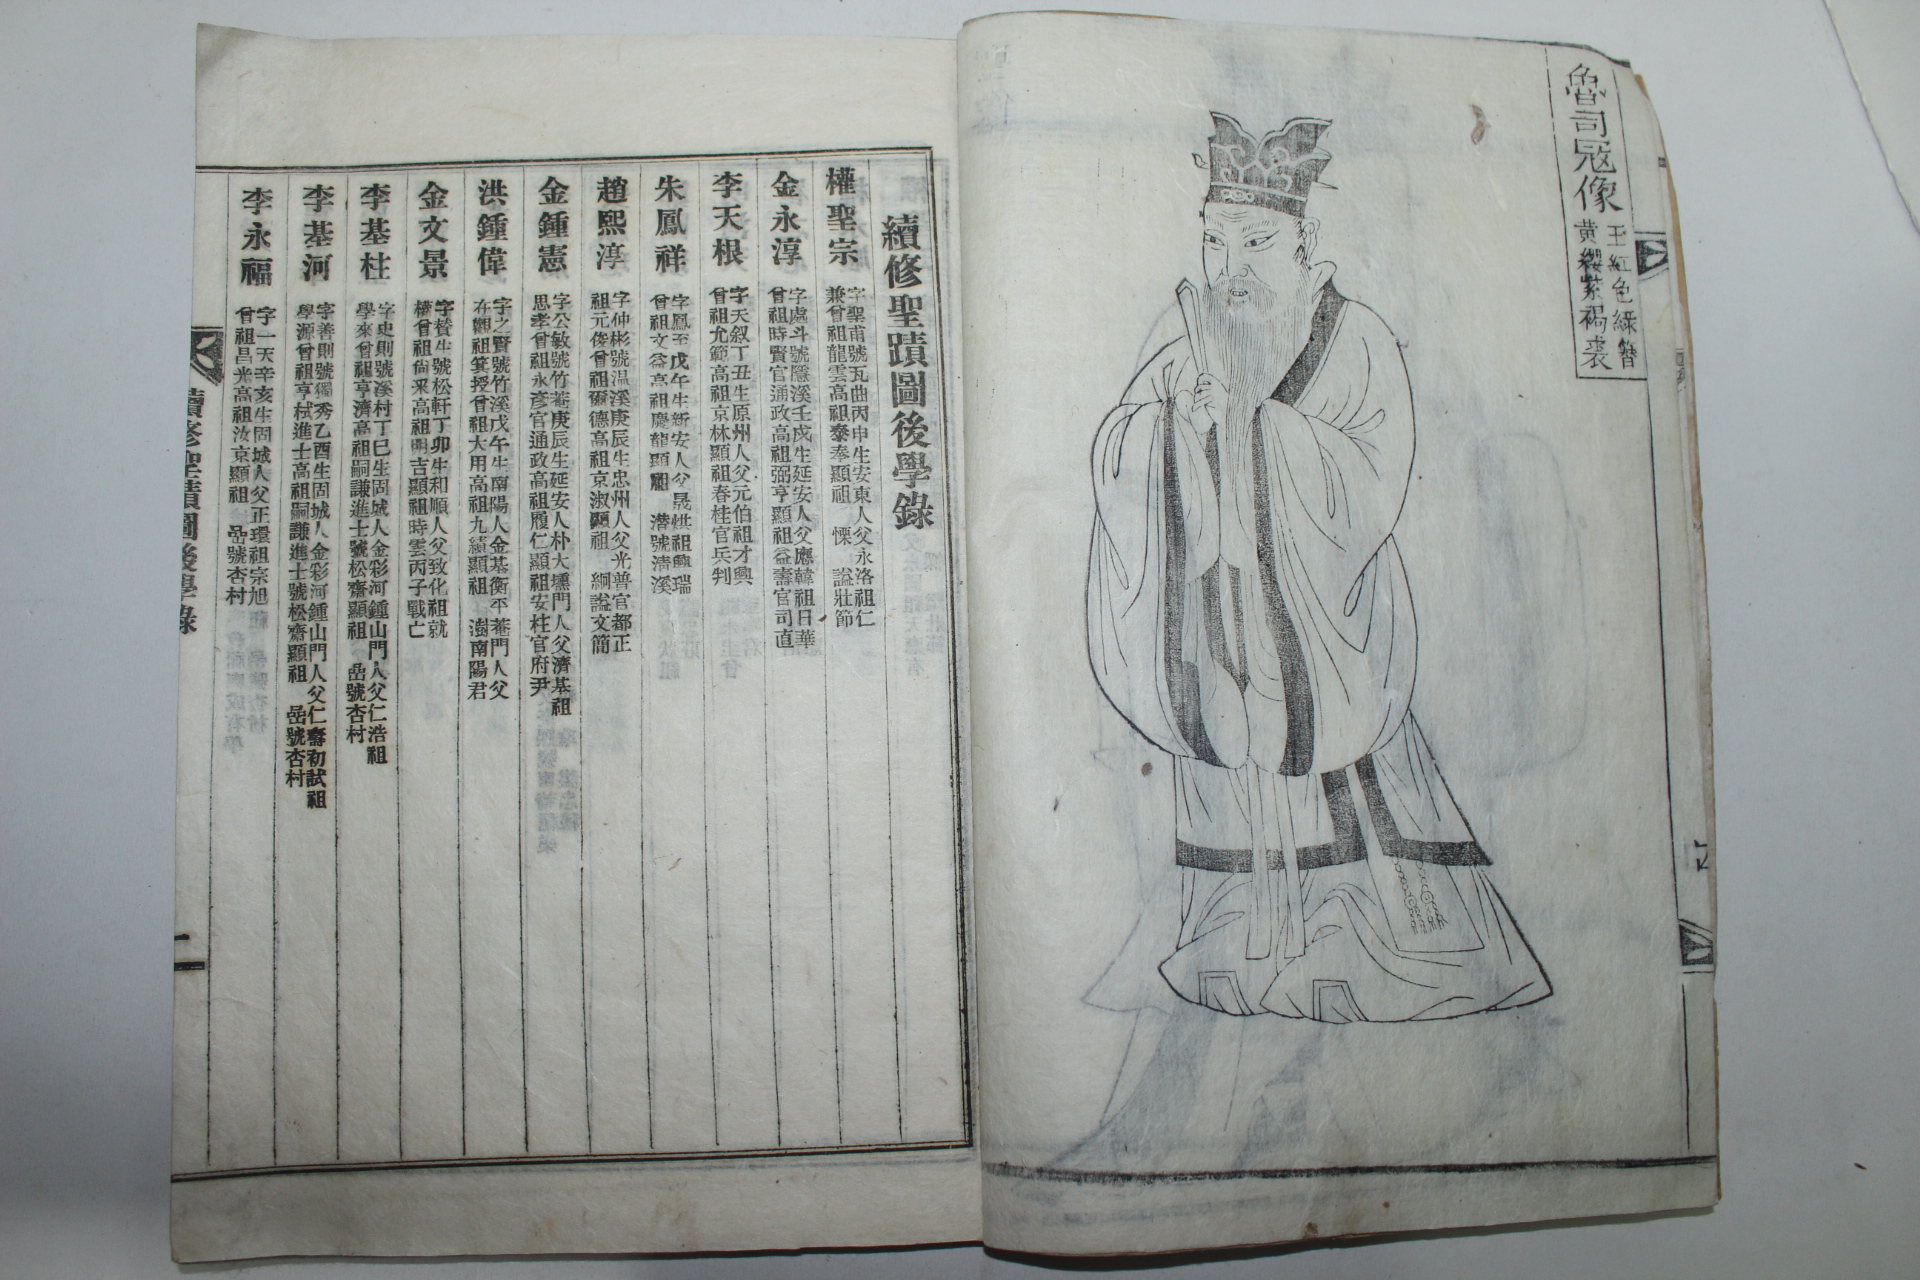 魯司冦像
王紅色綠簪
黃纓紫裼裘
續修聖蹟圖後學錄
權聖宗
字聖甫號瓦曲丙申生安東人父永洛祖仁
兼曾祖龍雲高祖泰奉顯祖 慄 謚壯節
金永淳
字處斗號隱溪壬戌生延安人父應韓祖日華
曾祖時賢官通政高祖弼亨顯祖益壽官司直
李天根
字天叙丁丑生原州人父元伯祖才興
曾祖允範高祖京林顯祖春桂官兵判
朱鳳祥
字鳳至戊午生新安人父晟烘祖興瑞
曾祖文益高祖慶龍顯祖 潛號清溪
趙熙淳
字仲彬號温溪庚辰生忠州人父光普官都正
祖元俊曾祖爾德高祖京淑顯祖 絅謚文簡
金鍾憲
字公敏號竹菴庚辰生延安人朴大壎門人父濟基祖
思孝曾祖永彦官通政高祖履仁顯祖安柱官府尹
洪鍾偉
字之賢號竹溪戊午生南陽人金基衡平菴門人父
在觀祖箕授曾祖大用高祖九績顯祖 澍南陽君
金文景
字賛生號松軒丁卯生和順人父致化祖就
權曾祖尙采高祖明吉顯祖時雲丙子戰亡
李基柱
字史則號溪村丁巳生固城人金彩河鍾山門人父仁浩祖
學來曾祖亨濟高祖嗣謙進士號松齋顯祖 嵒號杏村
李基河
字善則號獨秀乙酉生固城人金彩河鍾山門人父仁壽初試祖
學源曾祖亨栻進士高祖嗣謙進士號松齋顯祖 嵒號杏村
李永福
字一天辛亥生固城人父正環祖宗旭
曾祖昌光高祖汝京顯祖 嵒號杏村
續修聖蹟圖後學錄
二